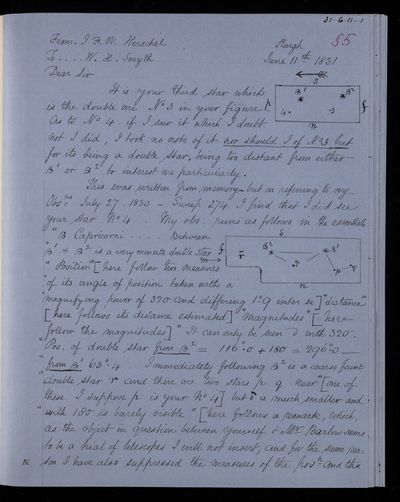 31-6-11-1
85
From. J. F. W. Herschel
Slough
To.... W. H. Smyth
June 11th 1831
Dear Sir
It is your third star which
is the double one No 3 in your figure
As to No 4. if I saw it which I doubt
not I did, I took no note of it nor should I of No 3 but
for its being a double star, being too distant from either
B' or B² to interest me particularly.
This was written from memory - but on referring to my
Obsns July 27. 1830 - Sweep 274 I find that I did see
your star No 4. My obs. runs as follows in the essentials
"B Capricorni..... Between
"B' & B² is a very minute double star
"Position" [here follow five measures
"of its angle of position taken with a
magnifying power of 320 and differing 1°.9 inter se] "distance"
[here follows its distance estimated] "Magnitudes" [here
follow the magnitudes] "It can only be seen d with 320.
"Pos. of double star from B² = 116°.0 + 180 = 296°.0
"from B' 63°.4. Immediately following B² is a coarse faint
"double star r and there are two stars p q near" [one of
these I suppose p is your No 4] but is much smaller and
"with 180 is barely visible" [here follows a remark, which,
as the object in question between yourself & Mr Barlow seems
to be a trial of telescopes I will not insert, and for the same rea-
son I have also suppressed the measures of the posn and the
s
B'
B²
p
f
4
3
n
s
f
r
B²
B'
p
n